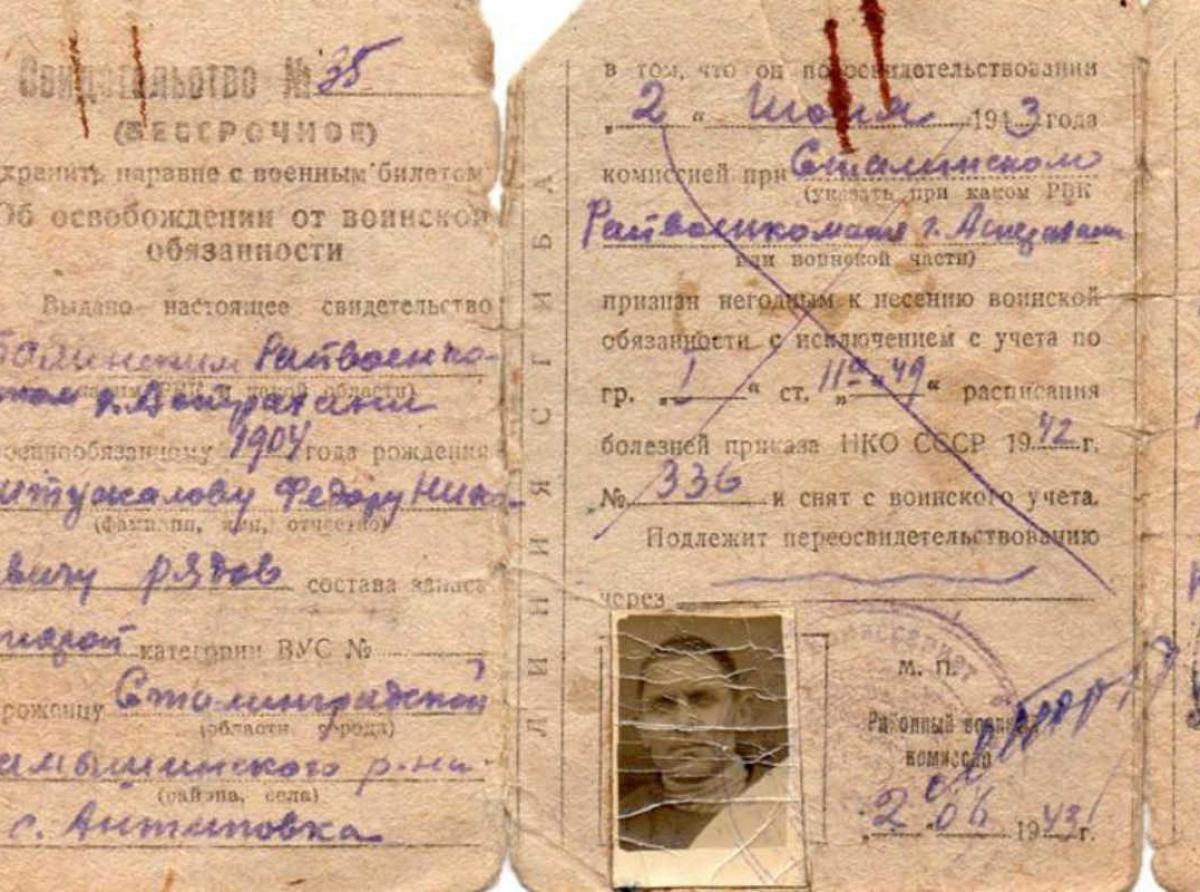 Свидетельство № 35
(БЕССРОЧНОЕ)
хранить наравне с военным билетом
Об освобождении от воинской
обязанности
Выдано настоящее свидетельство
Райвоенко-
г. Астрахани
1904 года рождения
Федору Нико-
(фамилия, имя, отчество)
вичу рядов состава запаса
категории ВУС №
Сталинградской
(области, города)
р-на
(района, села)
с. Антиповка
ЛИНИЯ СГИБА
в том, что он по освидетельствовании
„2“ Июня 1943 года
комиссией при Сталинском
(указать при каком РВК
Райвоенкомате г. Астрахани
или воинской части)
признан негодным к несению воинской
обязанности с исключением с учета по
гр. „I“ ст. „49“ расписания
болезней приказа НКО СССР 1942 г.
№ 336 и снят с воинского учета.
Подлежит переосвидетельствованию
через
М. П.
Районный военный
комиссар
„2“ 06 1943 г.